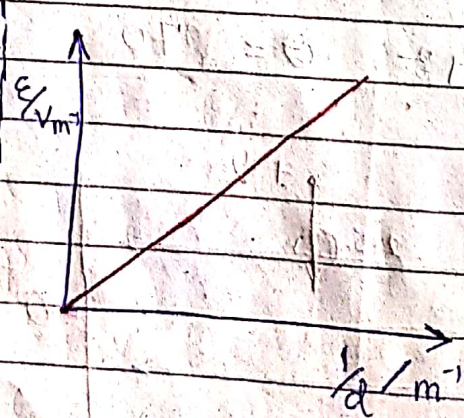 ε/Vm⁻¹
1/d / m⁻¹